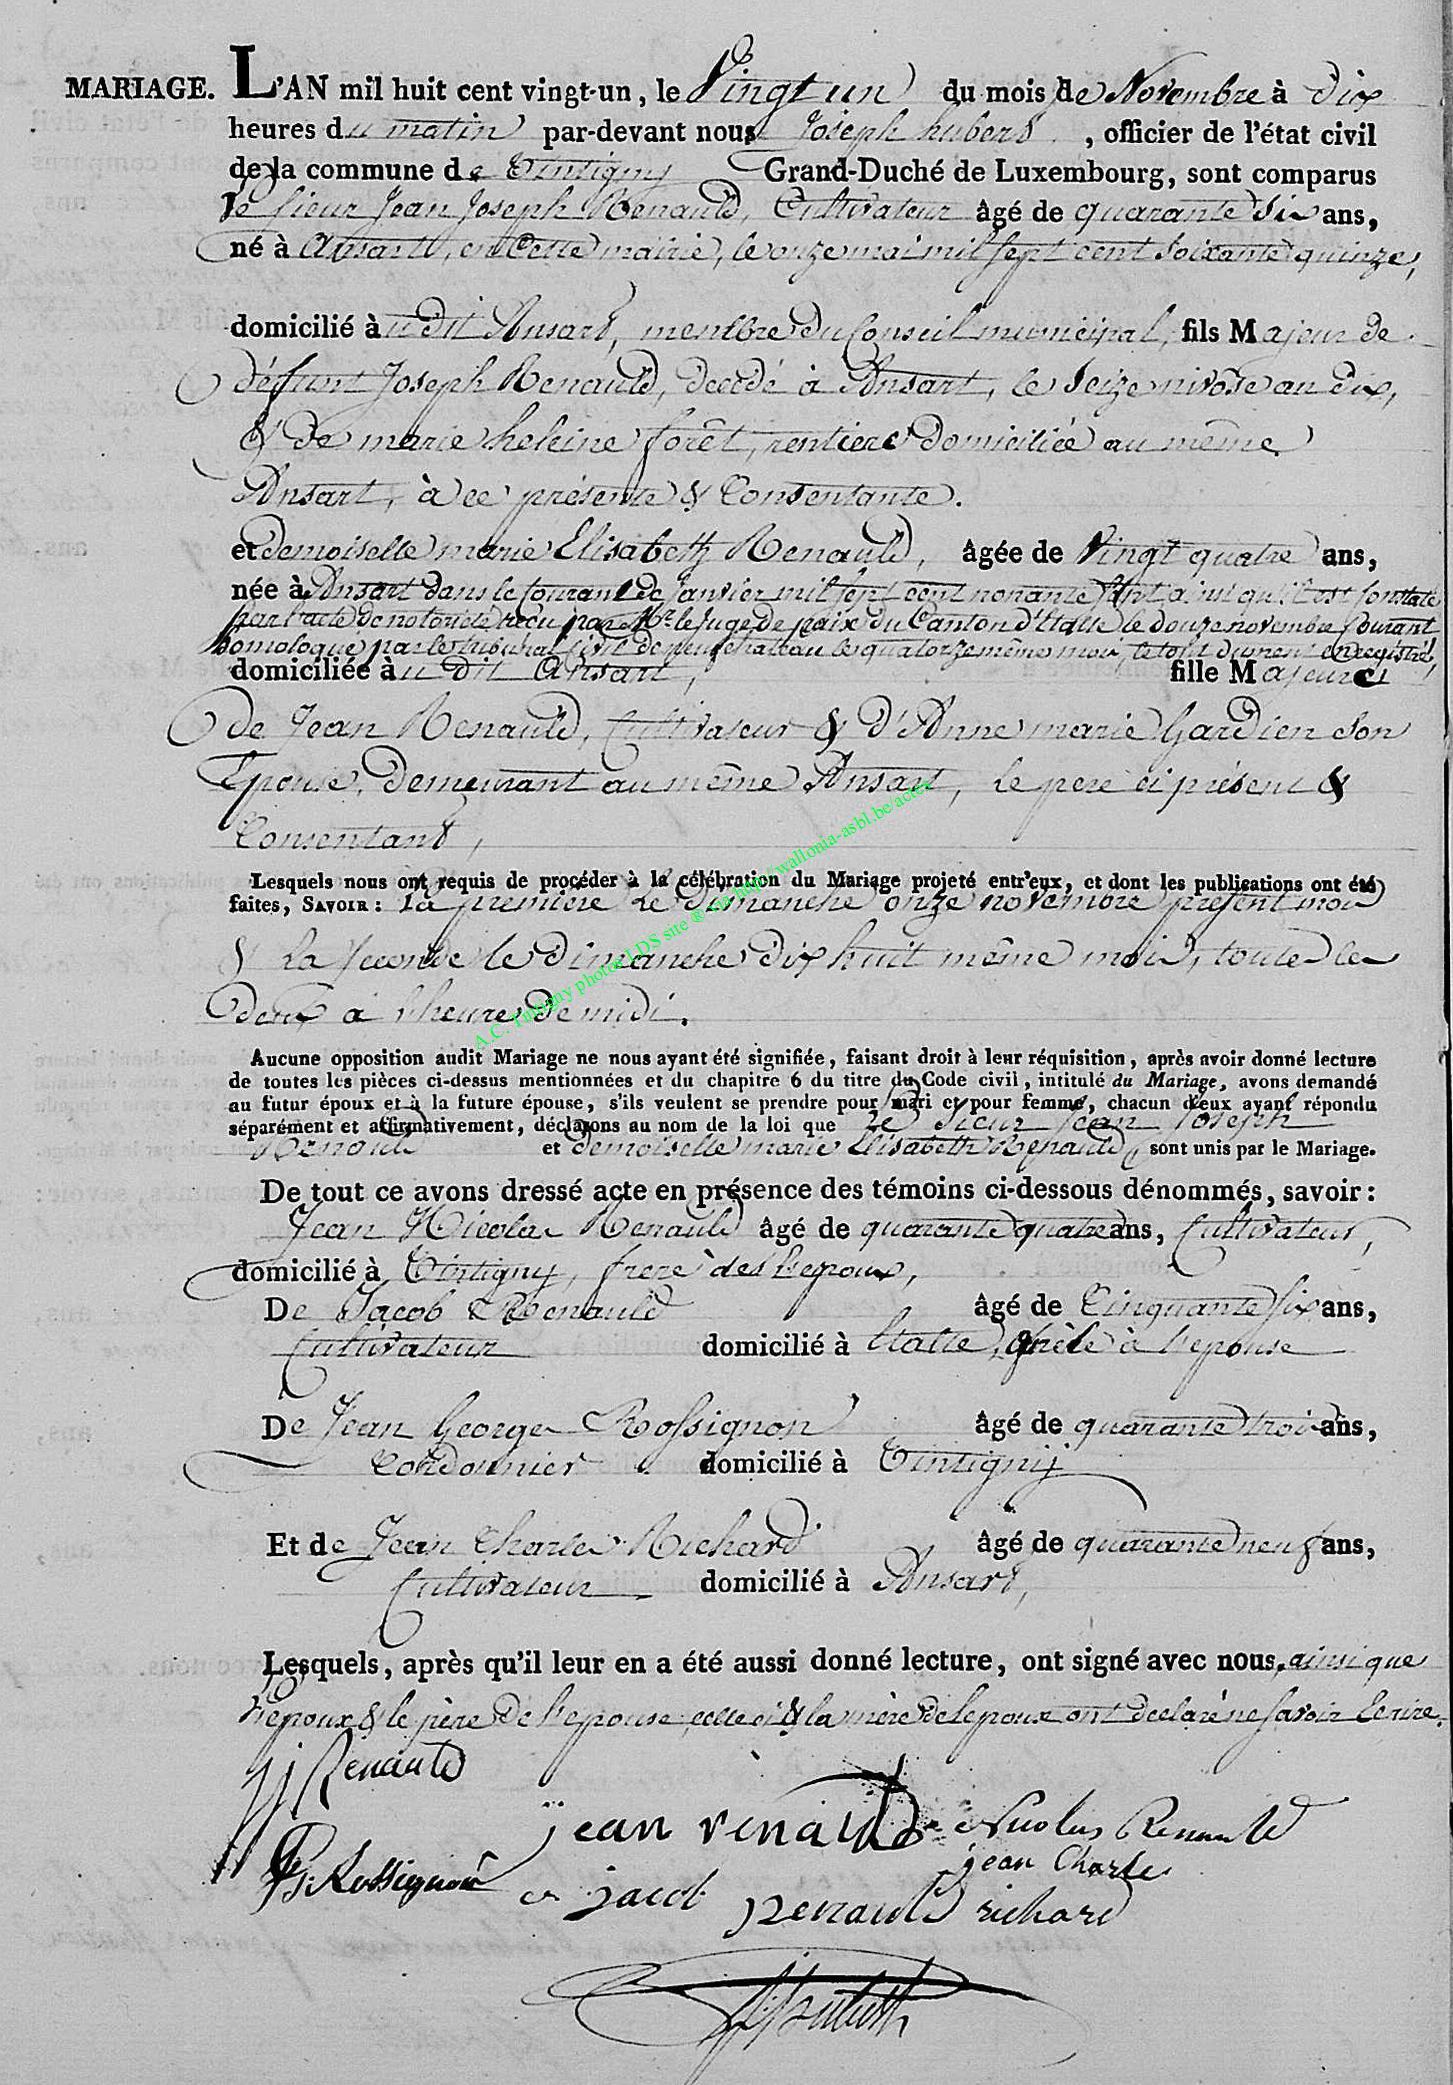 MARIAGE. L'AN mil huit cent vingt-un, le Vingt un du mois de Novembre à dix
heures du matin par-devant nous Joseph hubert, officier de l'état civil
de la commune de Tintigny Grand-Duché de Luxembourg, sont comparus
le sieur Jean Joseph Renauld, Cultivateur âgé de quarante Six ans,
né à Ansart, en cette mairie, le onze mai mil sept cent soixante quinze,
domicilié à u dit Ansart, membre du Conseil municipal, fils Majeur de
défunt Joseph Renauld, decédé à Ansart, le Seize nivôse an dix,
& de marie heleine forêt, rentiere domiciliée au même
Ansart, à ce présente & Consentante.
et demoiselle marie Elisabeth Renauld, âgée de Vingt quatre ans,
née à Ansart dans le Courant de janvier mil sept cent nonante sept ainsi qu'il est Constaté
par l'acte de notoriété reçu par Mr. le Juge de paix du Canton d'Etalle le douze novembre Courant
homologué par le tribunal Civil de neufchateau le quatorze même mois, le tout dument enregistré,
domiciliée à u dit Ansart, fille Majeure
de Jean Renauld, Cultivateur & d'Anne marie Gardien son
Epouse, demeurant au même Ansart, le pere ci présent &
Consentant,
Lesquels nous ont requis de procéder à la célébration du Mariage projeté entr'eux, et dont les publications ont été
faites, SAVOIR : La première Le dimanche onze novembre présent mois
& La seconde le dimanche dix huit même mois, toutes les
deux à l'heure de midi.
Aucune opposition audit Mariage ne nous ayant été signifiée, faisant droit à leur réquisition, après avoir donné lecture
de toutes les pièces ci-dessus mentionnées et du chapitre 6 du titre du Code civil, intitulé du Mariage, avons demandé
au futur époux et à la future épouse, s'ils veulent se prendre pour mari et pour femme, chacun d'eux ayant répondu
séparément et affirmativement, déclarons au nom de la loi que Le Sieur Jean Joseph
Renauld et demoiselle marie Elisabeth Renauld, sont unis par le Mariage.
De tout ce avons dressé acte en présence des témoins ci-dessous dénommés, savoir :
Jean Nicolas Renauld âgé de quarante quatre ans, Cultivateur,
domicilié à Tintigny, frere de l'epoux,
De Jacob Renauld âgé de Cinquante six ans,
Cultivateur domicilié à Etalle, à l'epouse
De Jean George Rossignon âgé de quarante trois ans,
Cordonnier domicilié à Tintigny
Et de Jean Charles Richard âgé de quarante neuf ans,
Cultivateur domicilié à Ansart,
Lesquels, après qu'il leur en a été aussi donné lecture, ont signé avec nous, ainsi que
l'epoux & le père de l'epouse, celle ci & la mère de l'epoux ont declaré ne savoir Ecrire.
JJ Renauld
jean renauld Nicolas Renauld
JG Rossignon jacob renauld jean Charles
richard
J Hubert
A.C. Tintigny photos LDS site ® via http://wallonia-asbl.be/actes